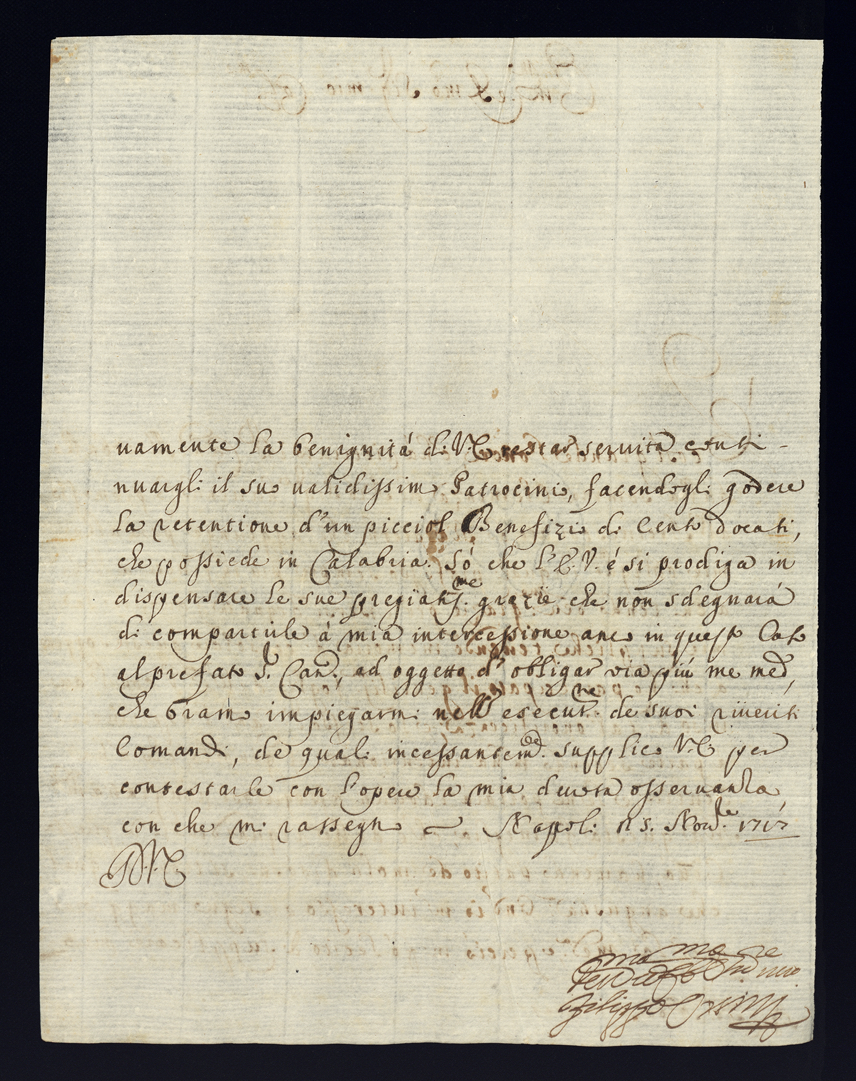 uamente la benignità di V.E. restar seruita conti-
nuargli il suo validissimo Patrocinio, facendogli godere
la retentione d'un picciol Benefizio di Cento Docati,
che possiede in Calabria. Sò che l'E.V. è si prodiga in
dispensare le sue pregiatis.me grazie che non sdegnarà
di compartirle à mia intercessione anco in questo Caso
al prefato S.r Can.co, ad oggetto d'obligar via più me med.o,
che bramo impiegarmi nell'esecut.ne de suoi riueriti
Comandi, de quali incessantem.te supplico V.E. per
contestarle con l'opere la mia diuota osseruanza
con che mi rassegno Napoli 15. Nov.bre 1717
D.V.E.
Filippo